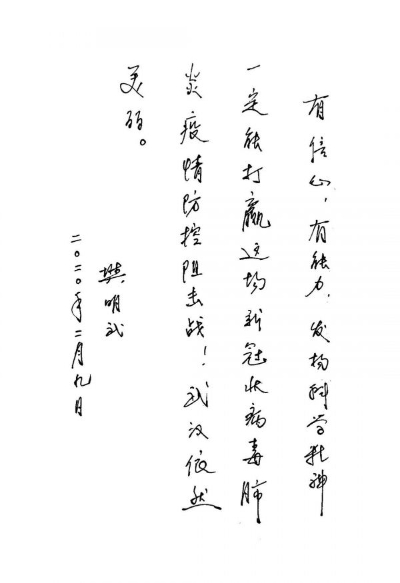 有信心，有能力，发扬科学精神
一定能打赢这场新冠状病毒肺
炎疫情防控阻击战！武汉依然
美丽。
樊明武
二〇二〇年二月九日